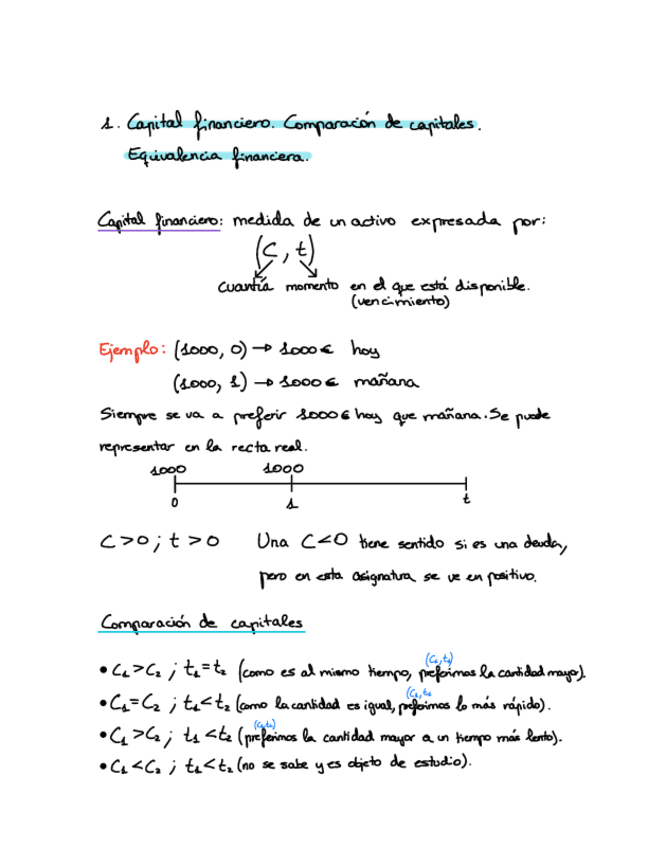 1. Capital financiero. Comparación de capitales.
Equivalencia financiera.
Capital financiero: medida de un activo expresada por:
(C, t)
cuantía momento en el que está disponible.
(vencimiento)
Ejemplo: (1000, 0) → 1000€ hoy
(1000, 1) → 1000€ mañana
Siempre se va a preferir 1000€ hoy que mañana. Se puede
representar en la recta real.
1000 1000
0 1 t
C>0 ; t>0 Una C<0 tiene sentido si es una deuda,
pero en esta asignatura se ve en positivo.
Comparación de capitales
(C₁,t₁)
• C₁>C₂ ; t₁=t₂ (como es al mismo tiempo, preferimos la cantidad mayor).
(C₁,t₁
• C₁=C₂ ; t₁<t₂ (como la cantidad es igual, preferimos lo más rápido).
(C₁,t₁)
• C₁>C₂ ; t₁<t₂ (preferimos la cantidad mayor a un tiempo más lento).
• C₁<C₂ ; t₁<t₂ (no se sabe y es objeto de estudio).